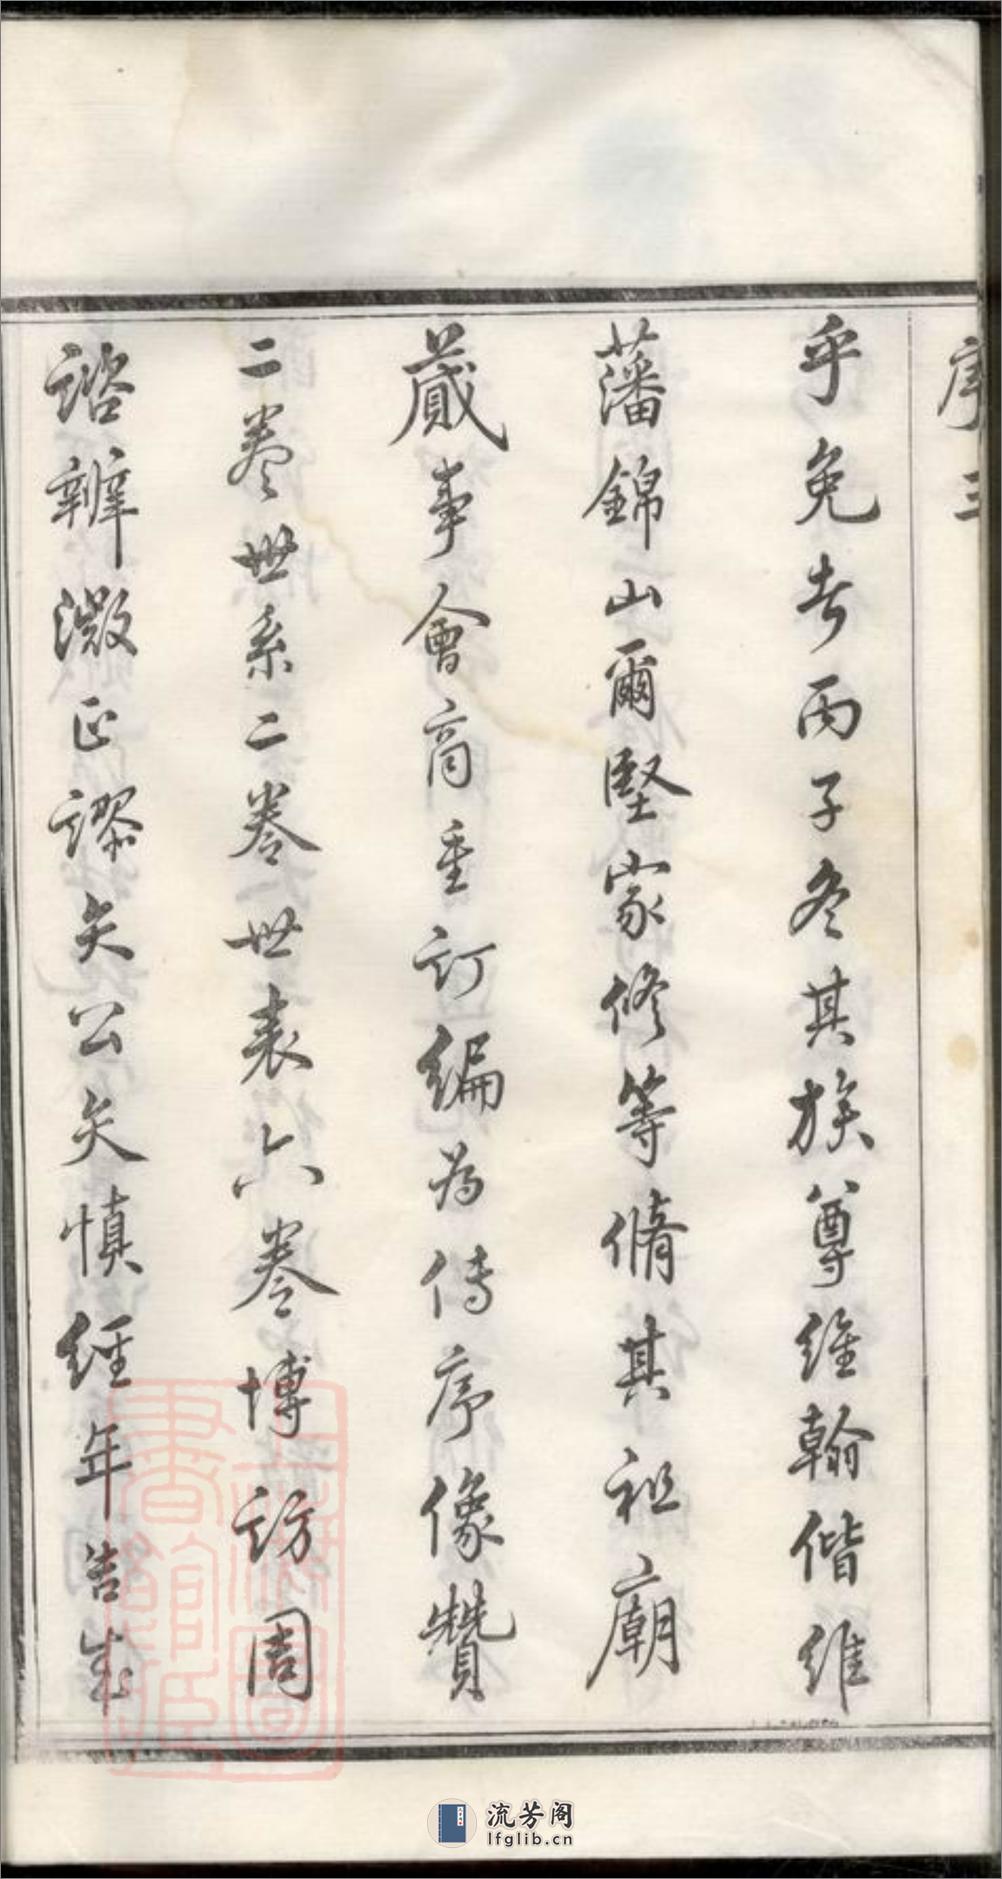 序三
乎免者丙子冬其族尊維翰偕維
藩錦山爾堅家修等脩其祖廟
蕆事會商重訂編为傳序像贊
二卷世系二卷世表六卷博訪周
諮辨微正謬矣公矣慎經年告成
流芳阁
lfglib.cn